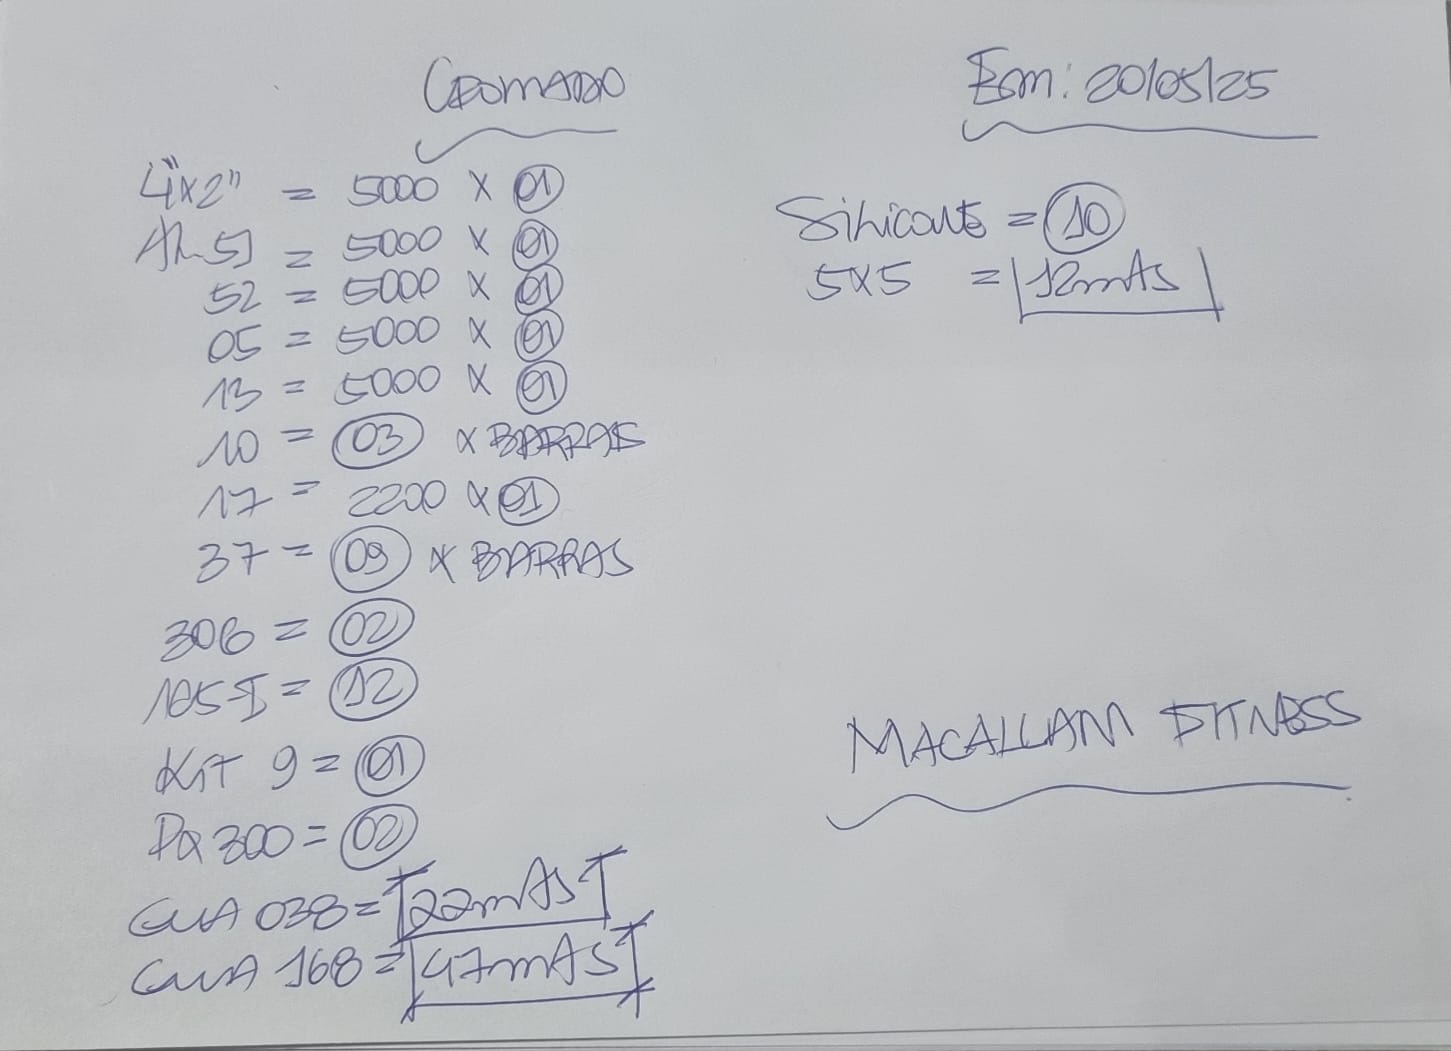 CROMADO
Em: 20/05/25
4"x2" = 5000 x 01
AL 51 = 5000 x 01
52 = 5000 x 01
05 = 5000 x 01
13 = 5000 x 01
10 = 03 x BARRAS
17 = 2200 x 01
37 = 09 x BARRAS
306 = 02
185-I = 12
Kit 9 = 01
PQ 300 = 02
GUA 038 = 22mts
GUA 168 = 47mts
Silicone = 10
5x5 = 12mts
MACALLAM FITNESS